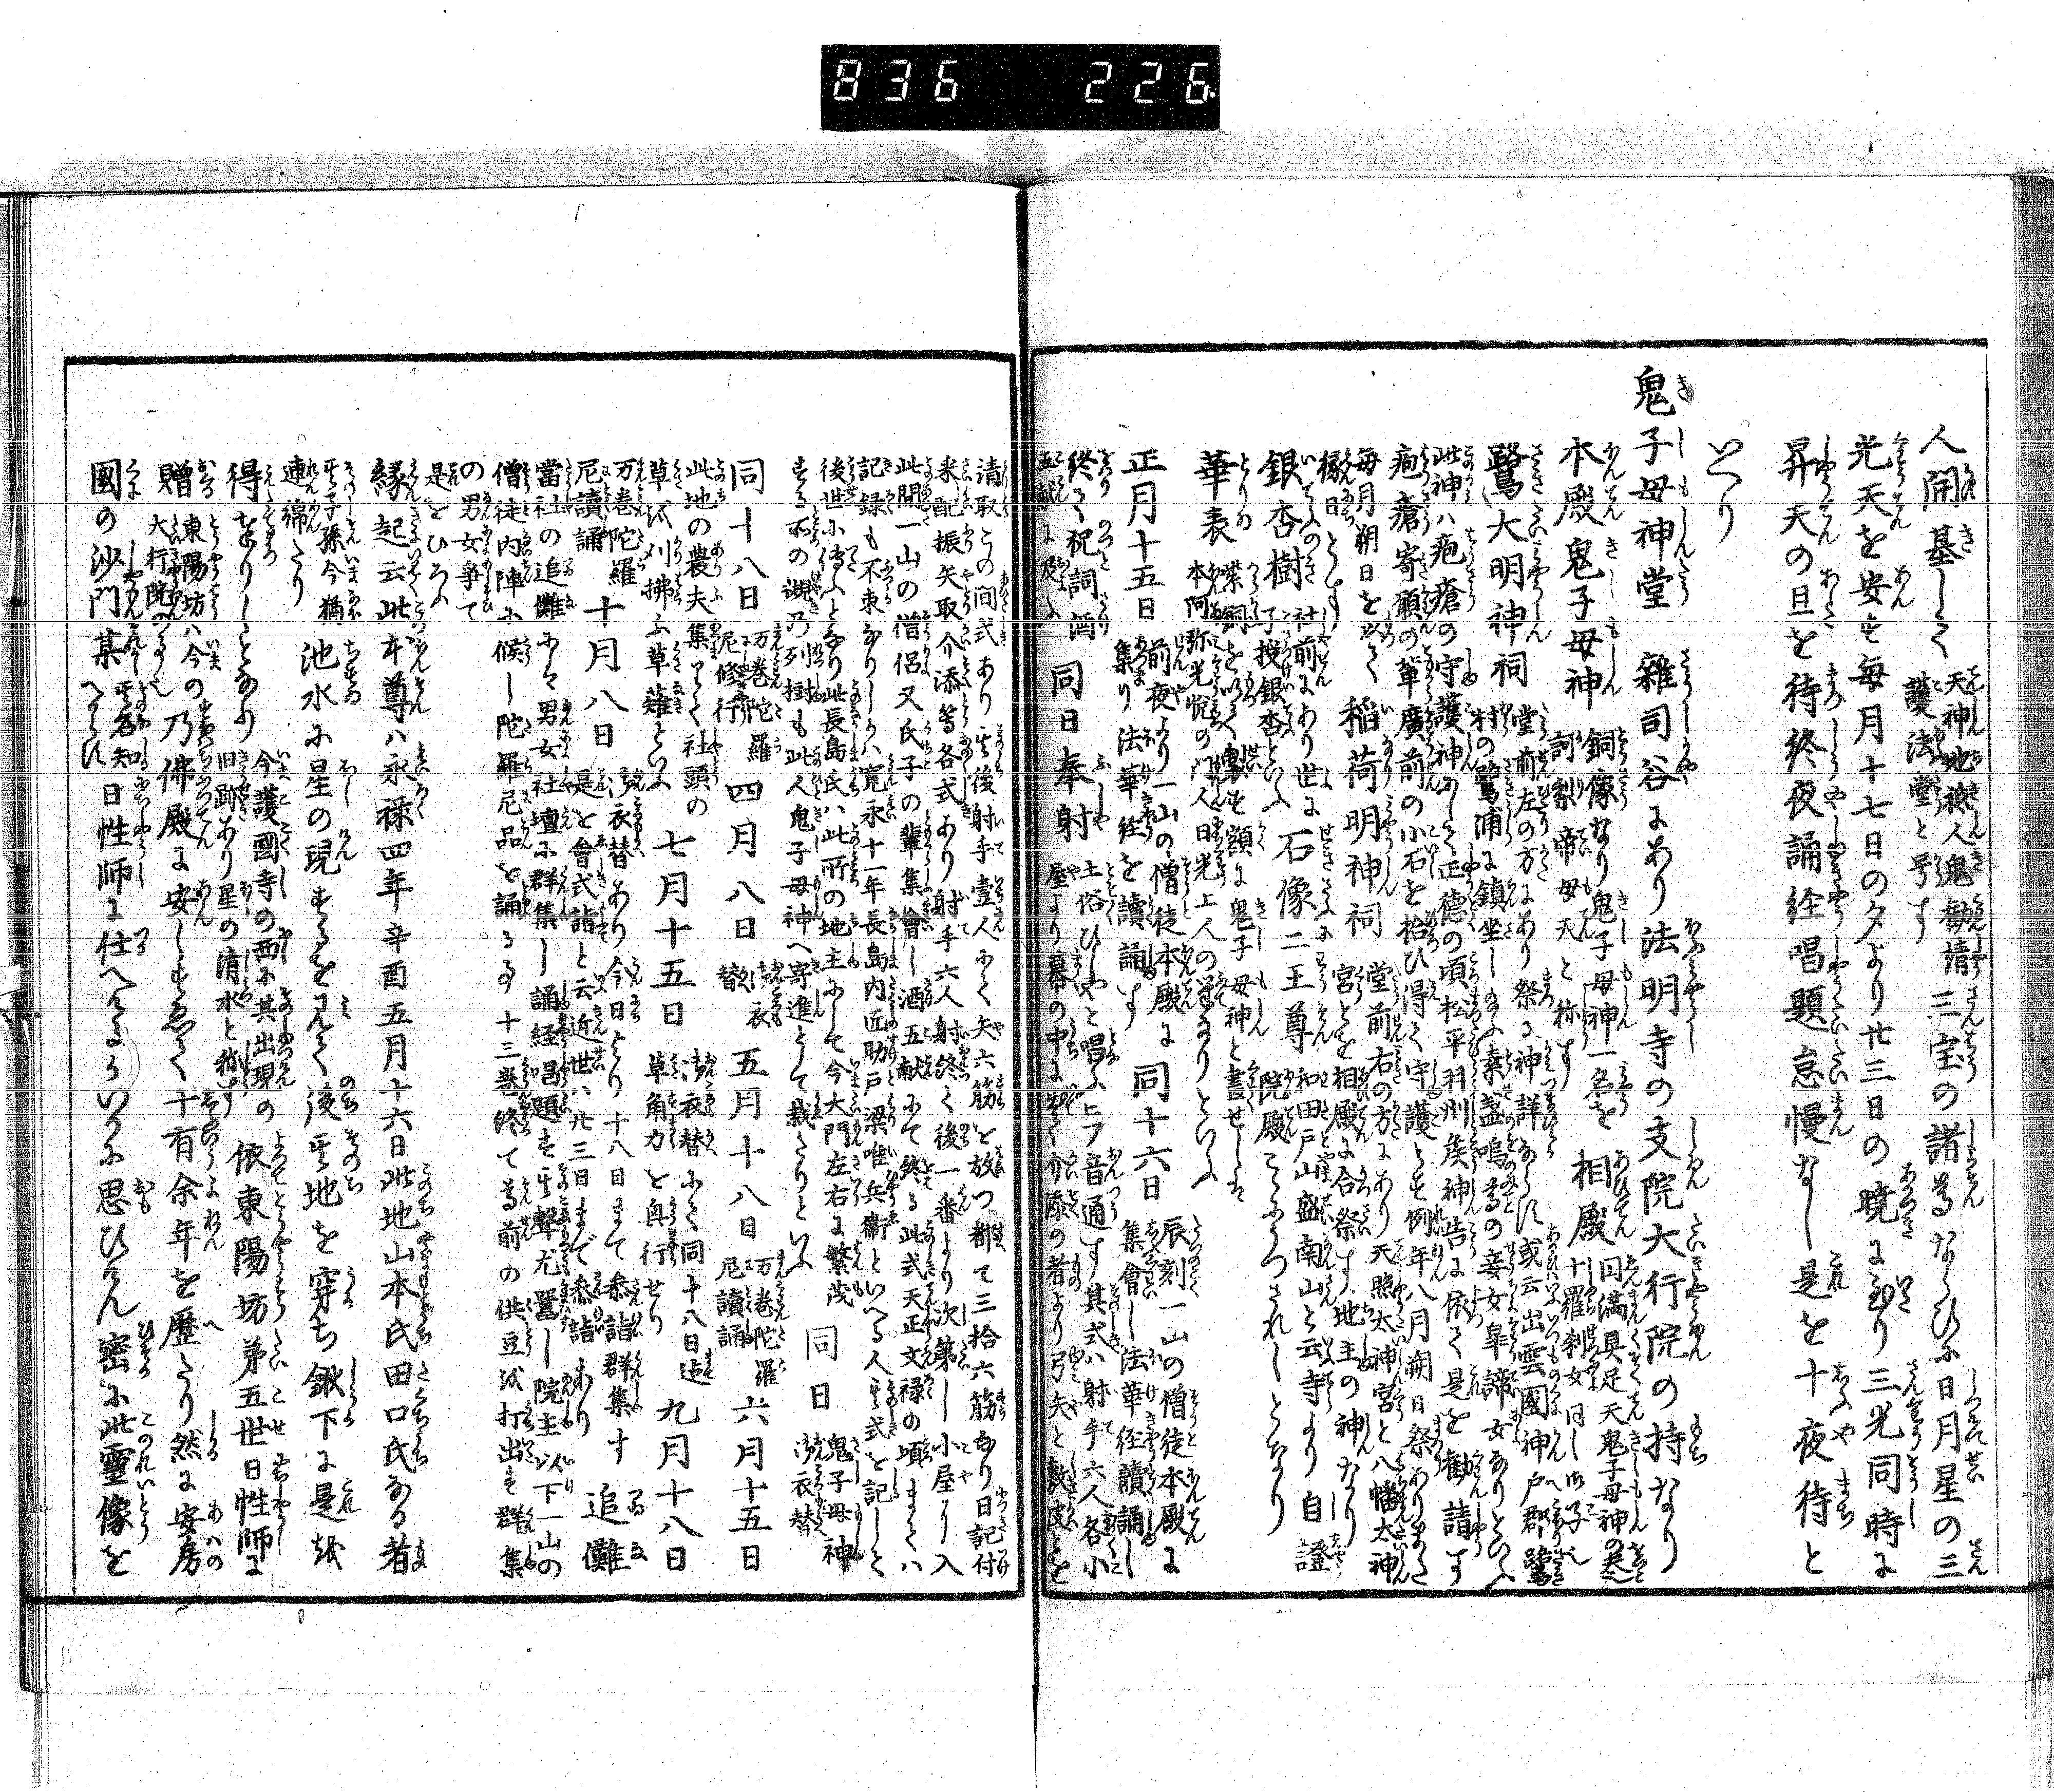 836 226
人開基しく 天神地祇人鬼勧請
護法堂と号す 三宝の諸尊ならひに日月星の三
光天を安す毎月十七日の夕より廿三日の暁に至り三光同時に
昇天の旦を待終夜誦経唱題怠慢なし是を十夜待と
いへり
鬼子母神堂 雑司谷にあり法明寺の支院大行院の持なり
本殿鬼子母神 銅像なり鬼子母神一名を
訶梨帝母天と称す 相殿 円満具足天鬼子母神の
十羅刹女同し御子
鷺大明神祠 堂前左の方にあり祭る神詳ならす或云出雲國神戸郡鷺
村の鷺浦に鎮坐しまふ素盞嗚尊の妾女皐諦女なりといふ
此神ハ疱瘡の守護神にして正徳の頃松平羽州侯神告に依て是を勧請す
疱瘡寄願の輩廣前の小石を拾ひ得て守護とす例年八月朔日祭あり
毎月朔日を以て
縁日とす 稲荷明神祠 堂前右の方にあり天照太神宮と八幡大神
宮とを相殿に合祭す地主の神なり
銀杏樹 社前にあり世に
子授銀杏といふ 石像二王尊 和田戸山盛南山と云寺より自證
院殿こゝにうつされしとなり
華表 紫銅を以て製す額に鬼子母神と書せしハ
本阿弥光悦の門人日光上人の筆なりといふ
正月十五日 前夜より一山の僧徒本殿に
集り法華経を讀誦す 同十六日 辰刻一山の僧徒本殿に
集會し法華経讀誦し
終て祝詞酒
五献に及ふ 同日奉射 土俗ひしやと唱ふヒフ音通す其式ハ射手六人各小
屋より幕の中に出て介添の者より弓矢と敷皮とを
請取この間式あり其後射手壹人にて矢六筋を放つ都て三拾六筋なり日記付
釆配振矢取介添等各式あり射手六人射終て後一番より次第し小屋に入
此間一山の僧侶又氏子の輩集會し酒五献にて終る此式天正文禄の頃まてハ
記録も不束なりしか寛永十一年長島内匠助戸梁唯兵衛といへる人其式を記しを
後世に傳ふとなり此長島氏ハ此所の地主にして今大門左右に繁茂
する所の槻乃列樹も此人鬼子母神へ寄進として栽たりといふ 同日 鬼子母神
御衣替
同十八日 万巻陀羅
尼修行 四月八日 御衣
替 五月十八日 万巻陀羅
尼讀誦 六月十五日
此地の農夫集りて社頭の
草を刈拂ふ草薙といふ 七月十五日 御衣替にて同十八日迄
草角力を興行せり 九月十八日
万巻陀羅
尼讀誦 十月八日 御衣替あり今日より十八日まて参詣群集す
是を會式詣と云近世ハ廿三日まで参詣あり 追儺
當社の追儺にハ男女社壇に群集し誦経唱題す其聲尤囂し院主以下一山の
僧徒内陣に候し陀羅尼品を誦る事十三巻終て尊前の供豆を打出す群集
の男女爭て
是をひろふ
縁起云此本尊ハ永禄四年辛酉五月十六日此地山本氏田口氏なる者
其子孫今猶
連綿たり 池水に星の現するを見て後其地を穿ち鍬下に是を
得たりしとなり 今護國寺の西に其出現の
旧跡あり星の清水と称す 依東陽坊第五世日性師に
贈 東陽坊ハ今の
大行院の事也 乃佛殿に安しまゐらせて十有余年を歴たり然に安房
國の沙門某 其名知
へからす 日性師に仕へしかいかに思ひけん密に此靈像を